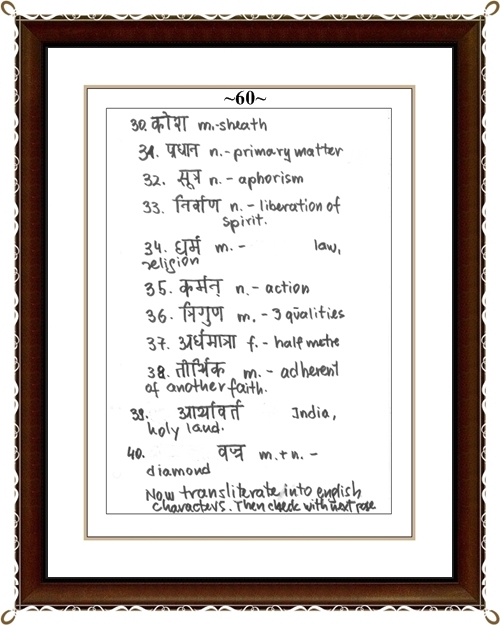 ~60~
30. कोश m.-sheath
31. प्रधान n.-primary matter
32. सूत्र n. - aphorism
33. निर्वाण n. - liberation of
spirit.
34. धर्म m. - law,
religion
35. कर्मन् n. - action
36. त्रिगुण m. - 3 qualities
37. अर्धमात्रा f. - half metre
38. तीर्थिक m. - adherent
of another faith.
39. आर्यावर्त India,
holy land.
40. वज्र m.+n. -
diamond
Now transliterate into english
characters. Then check with next page